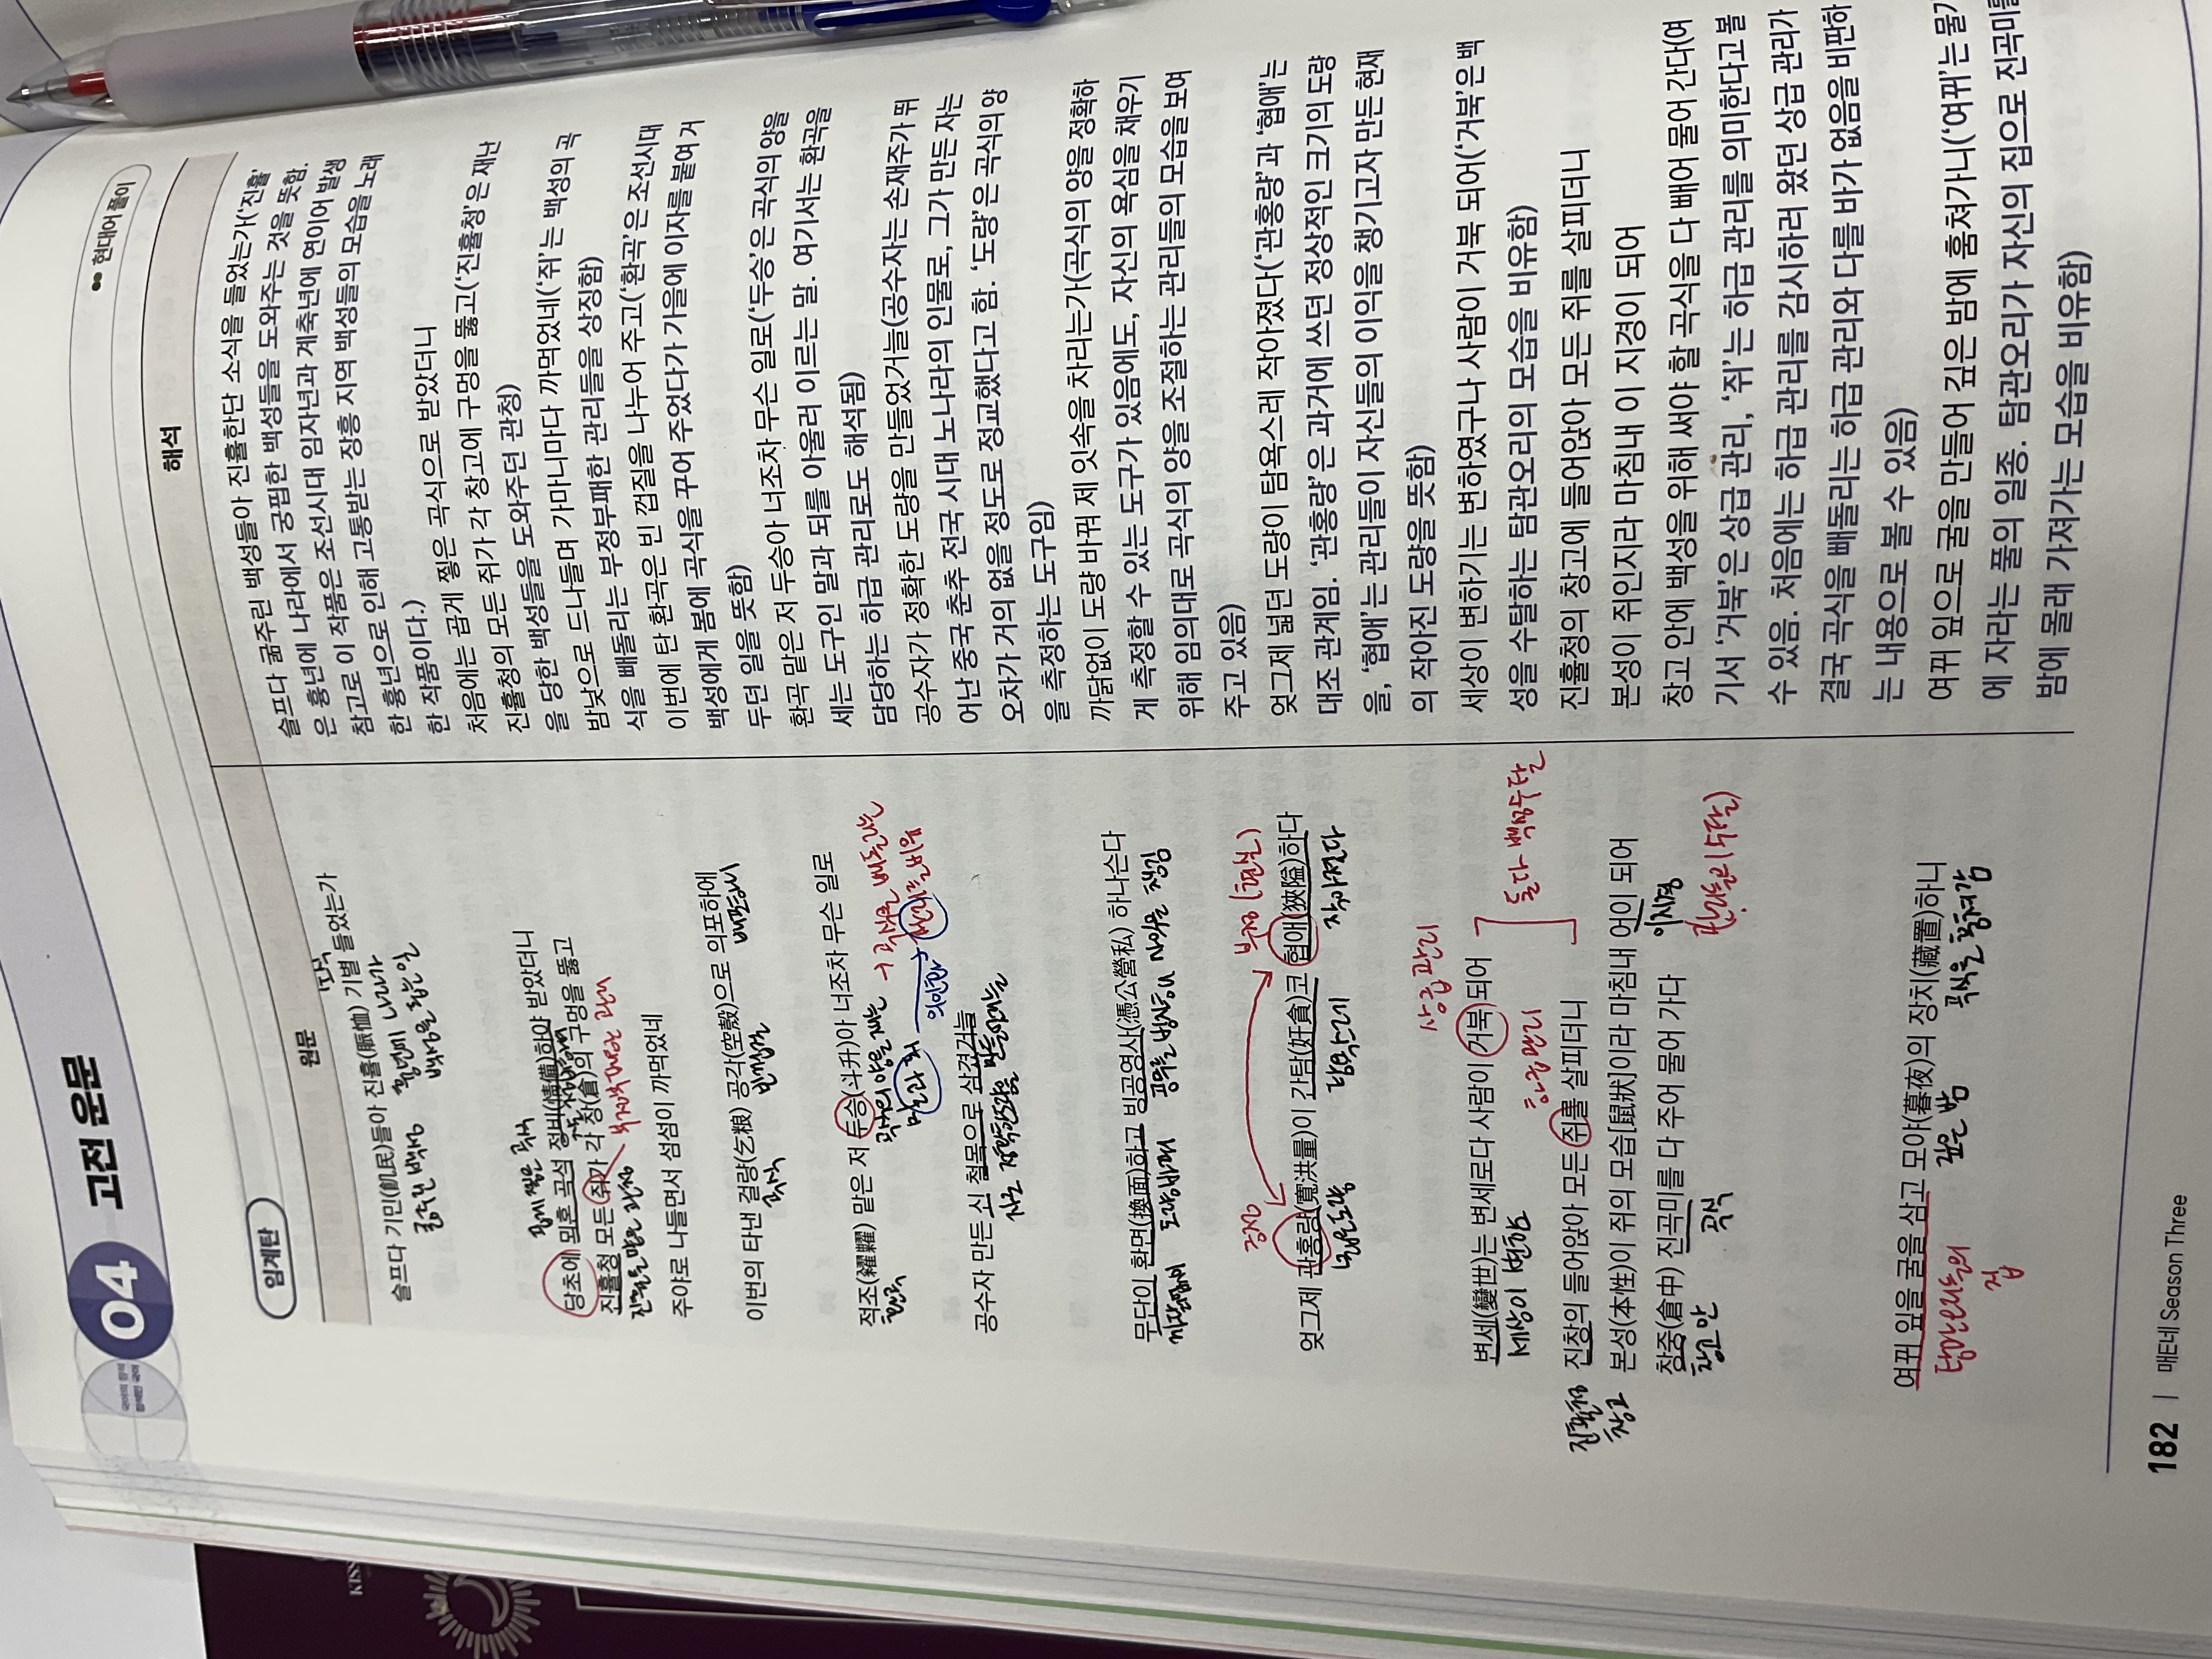 국어의 원리 함께한 국어
04 고전 운문
임계탄
현대어 풀이
원문
슬프다 기민(飢民)들아 진휼(賑恤) 기별 들었는가
소식
굶주린 백성
흉년에 나라가
백성을 돕는 일
당초에 뫼혼 곡석 정비(情備)하야 받았더니
곱게 찧은 곡식
진휼청 모든 쥐가 각 창(倉)의 구멍을 뚫고
진휼을 맡은 관청
부정부패한 관리
주야로 나들면서 섬섬이 까먹었네
이번의 타낸 걸량(乞粮) 공각(空殼)으로 의포하에
곡식
빈 껍질
적조(糴糶) 맡은 저 두승(斗升)아 너조차 무슨 일로
환곡
곡식의 양을 재는
말과 되
의인화
→ 곡식을 빼돌리는
관리를 비유
공수자 만든 신 철목으로 삼겼거늘
자로 정확한 도량을 만들어거늘
무단이 환면(換面)하고 빙공영사(憑公營私) 하나슨다
까닭없이
도량 바꿔
공무를 빙자하여 사익을 챙김
엊그제 관홍량(寬洪量)이 간탐(奸貪)코 협애(狹隘)하다
넓은 도량
탐욕스레
작아졌다
변세(變世)는 변세로다 사람이 거북 되어
세상이 변함
상급 관리
진창의 들어앉아 모든 쥐를 살피더니
진휼청
창고
하급관리
둘다 백성수탈
본성(本性)이 쥐의 모습[鼠狀]이라 마침내 어이 되어
이 지경
창중(倉中) 진곡미를 다 주어 물어 가다
창고 안
곡식
(관리들의 수탈)
여뀌 잎을 굴을 삼고 모야(暮夜)의 장치(藏置)하니
탐관오리들의
집
깊은 밤
곡식을 훔쳐감
해석
슬프다 굶주린 백성들아 진휼한단 소식을 들었는가(‘진휼’
은 흉년에 나라에서 궁핍한 백성들을 도와주는 것을 뜻함.
참고로 이 작품은 조선시대 임자년과 계축년에 연이어 발생
한 흉년으로 인해 고통받는 장흥 지역 백성들의 모습을 노래
한 작품이다.)
처음에는 곱게 찧은 곡식으로 받았더니
진휼청의 모든 쥐가 각 창고에 구멍을 뚫고(‘진휼청’은 재난
을 당한 백성들을 도와주던 관청)
밤낮으로 드나들며 가마니마다 까먹었네(‘쥐’는 백성의 곡
식을 빼돌리는 부정부패한 관리들을 상징함)
이번에 탄 환곡은 빈 껍질을 나누어 주고(‘환곡’은 조선시대
백성에게 봄에 곡식을 꾸어 주었다가 가을에 이자를 붙여 거
두던 일을 뜻함)
환곡 맡은 저 두승아 너조차 무슨 일로(‘두승’은 곡식의 양을
세는 도구인 말과 되를 아울러 이르는 말. 여기서는 환곡을
담당하는 하급 관리로도 해석됨)
공수자가 정확한 도량을 만들었거늘(공수자는 손재주가 뛰
어난 중국 춘추 전국 시대 노나라의 인물로, 그가 만든 자는
오차가 거의 없을 정도로 정교했다고 함. ‘도량’은 곡식의 양
을 측정하는 도구임)
까닭없이 도량 바꿔 제 잇속을 차리는가(곡식의 양을 정확하
게 측정할 수 있는 도구가 있음에도, 자신의 욕심을 채우기
위해 임의대로 곡식의 양을 조절하는 관리들의 모습을 보여
주고 있음)
엊그제 넓던 도량이 탐욕스레 작아졌다(‘관홍량’과 ‘협애’는
대조 관계임. ‘관홍량’은 과거에 쓰던 정상적인 크기의 도량
을, ‘협애’는 관리들이 자신들의 이익을 챙기고자 만든 현재
의 작아진 도량을 뜻함)
세상이 변하기는 변하였구나 사람이 거북 되어(‘거북’은 백
성을 수탈하는 탐관오리의 모습을 비유함)
진휼청의 창고에 들어앉아 모든 쥐를 살피더니
본성이 쥐인지라 마침내 이 지경이 되어
창고 안에 백성을 위해 써야 할 곡식을 다 빼어 물어 간다(여
기서 ‘거북’은 상급 관리, ‘쥐’는 하급 관리를 의미한다고 볼
수 있음. 처음에는 하급 관리를 감시하러 왔던 상급 관리가
결국 곡식을 빼돌리는 하급 관리와 다를 바가 없음을 비판하
는 내용으로 볼 수 있음)
여뀌 잎으로 굴을 만들어 깊은 밤에 훔쳐가니(‘여뀌’는 물가
에 자라는 풀의 일종. 탐관오리가 자신의 집으로 진곡미를
밤에 몰래 가져가는 모습을 비유함)
182 | 매터네 Season Three
KISS